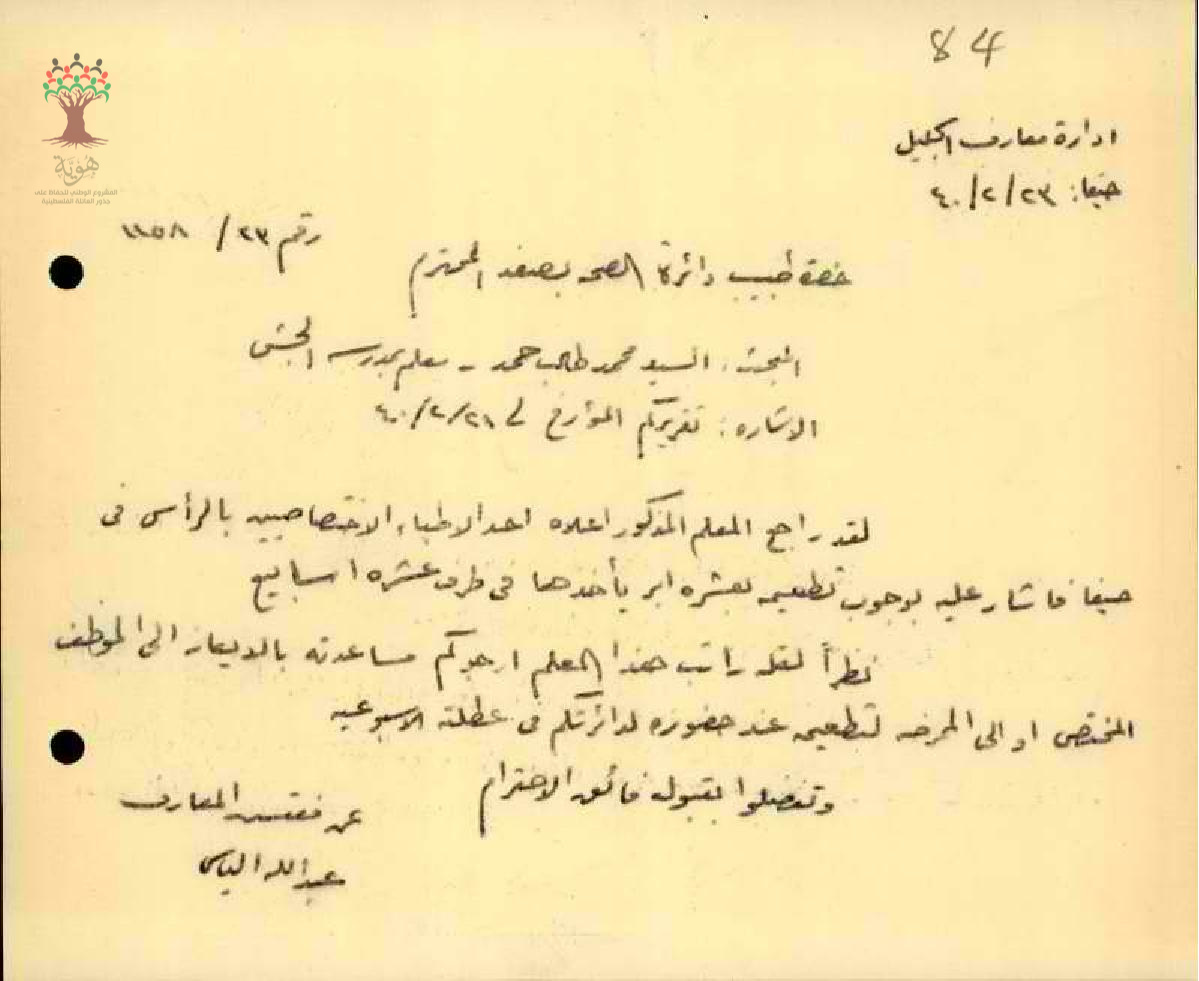 84
هُوِيَّة
المشروع الوطني للحفاظ على
جذور العائلة الفلسطينية
ادارة معارف الجليل
حيفا: ٤٠/٢/٢٣
رقم ٢٣ /
حضرة طبيب دائرة الصحه بصفد المحترم
البحث: السيد محمد طالب حمد - معلم بمدرسه الجش
الاشاره: تقريركم المؤرخ في ٤٠/٢/٢١
لقد راجع المعلم المذكور اعلاه احد الاطباء الاختصاصيين بالرأس في
حيفا فاشار عليه بوجوب تطعيمه بعشره ابر يأخذها في ظرف عشره اسابيع
نظراً لقلة راتب هذا المعلم ارجوكم مساعدته بالايعاز الى الموظف
المختص او الى الممرضه لتطعيمه عند حضوره لدائرتكم في عطلته الاسبوعيه
وتفضلوا بقبول فائق الاحترام
عن مفتش المعارف
عبد الله الياس